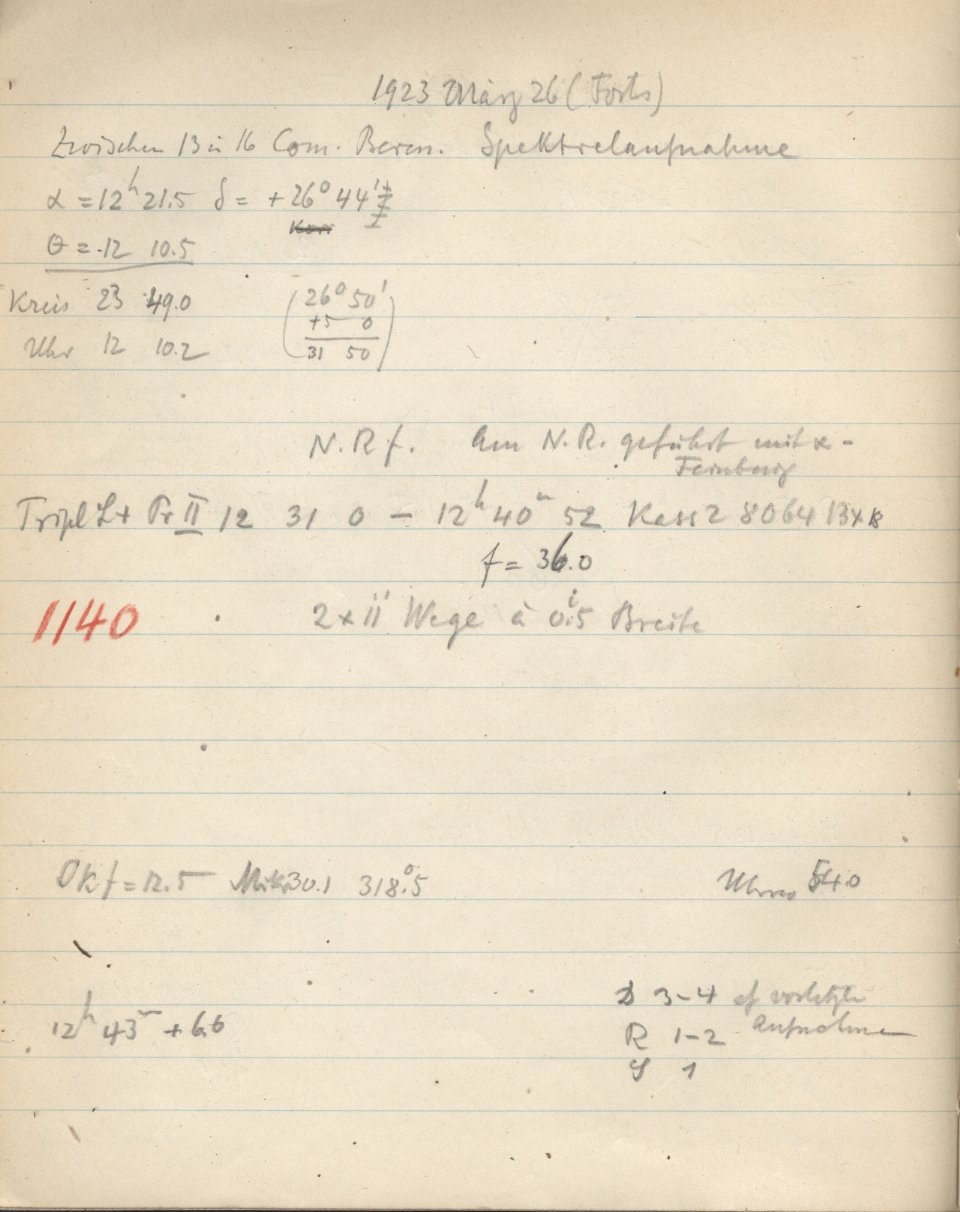 1923 März 26 (Forts)
Zwischen 13 u 16 Com. Beren. Spektralaufnahme
α = 12h 21.5 δ = +26° 44'
θ = 12 10.5
Kreis 23 49.0 (26° 50'
+5 0
Uhr 12 10.2 31 50)
N.R f. Am N.R. geführt mit α-
Feinbewg
Tripl L + Pr II 12 31 0 – 12h 40m 52 Kass 2 8064 13x18
f = 36.0
1140 2 x 11' Wege à 0.5 Breite
Ok f = 12.5 Mikr 30.1 318°.5 54.0
12h 43m + 6.6
3–4 cf vorletzte
Aufnahme
R 1–2
S 1